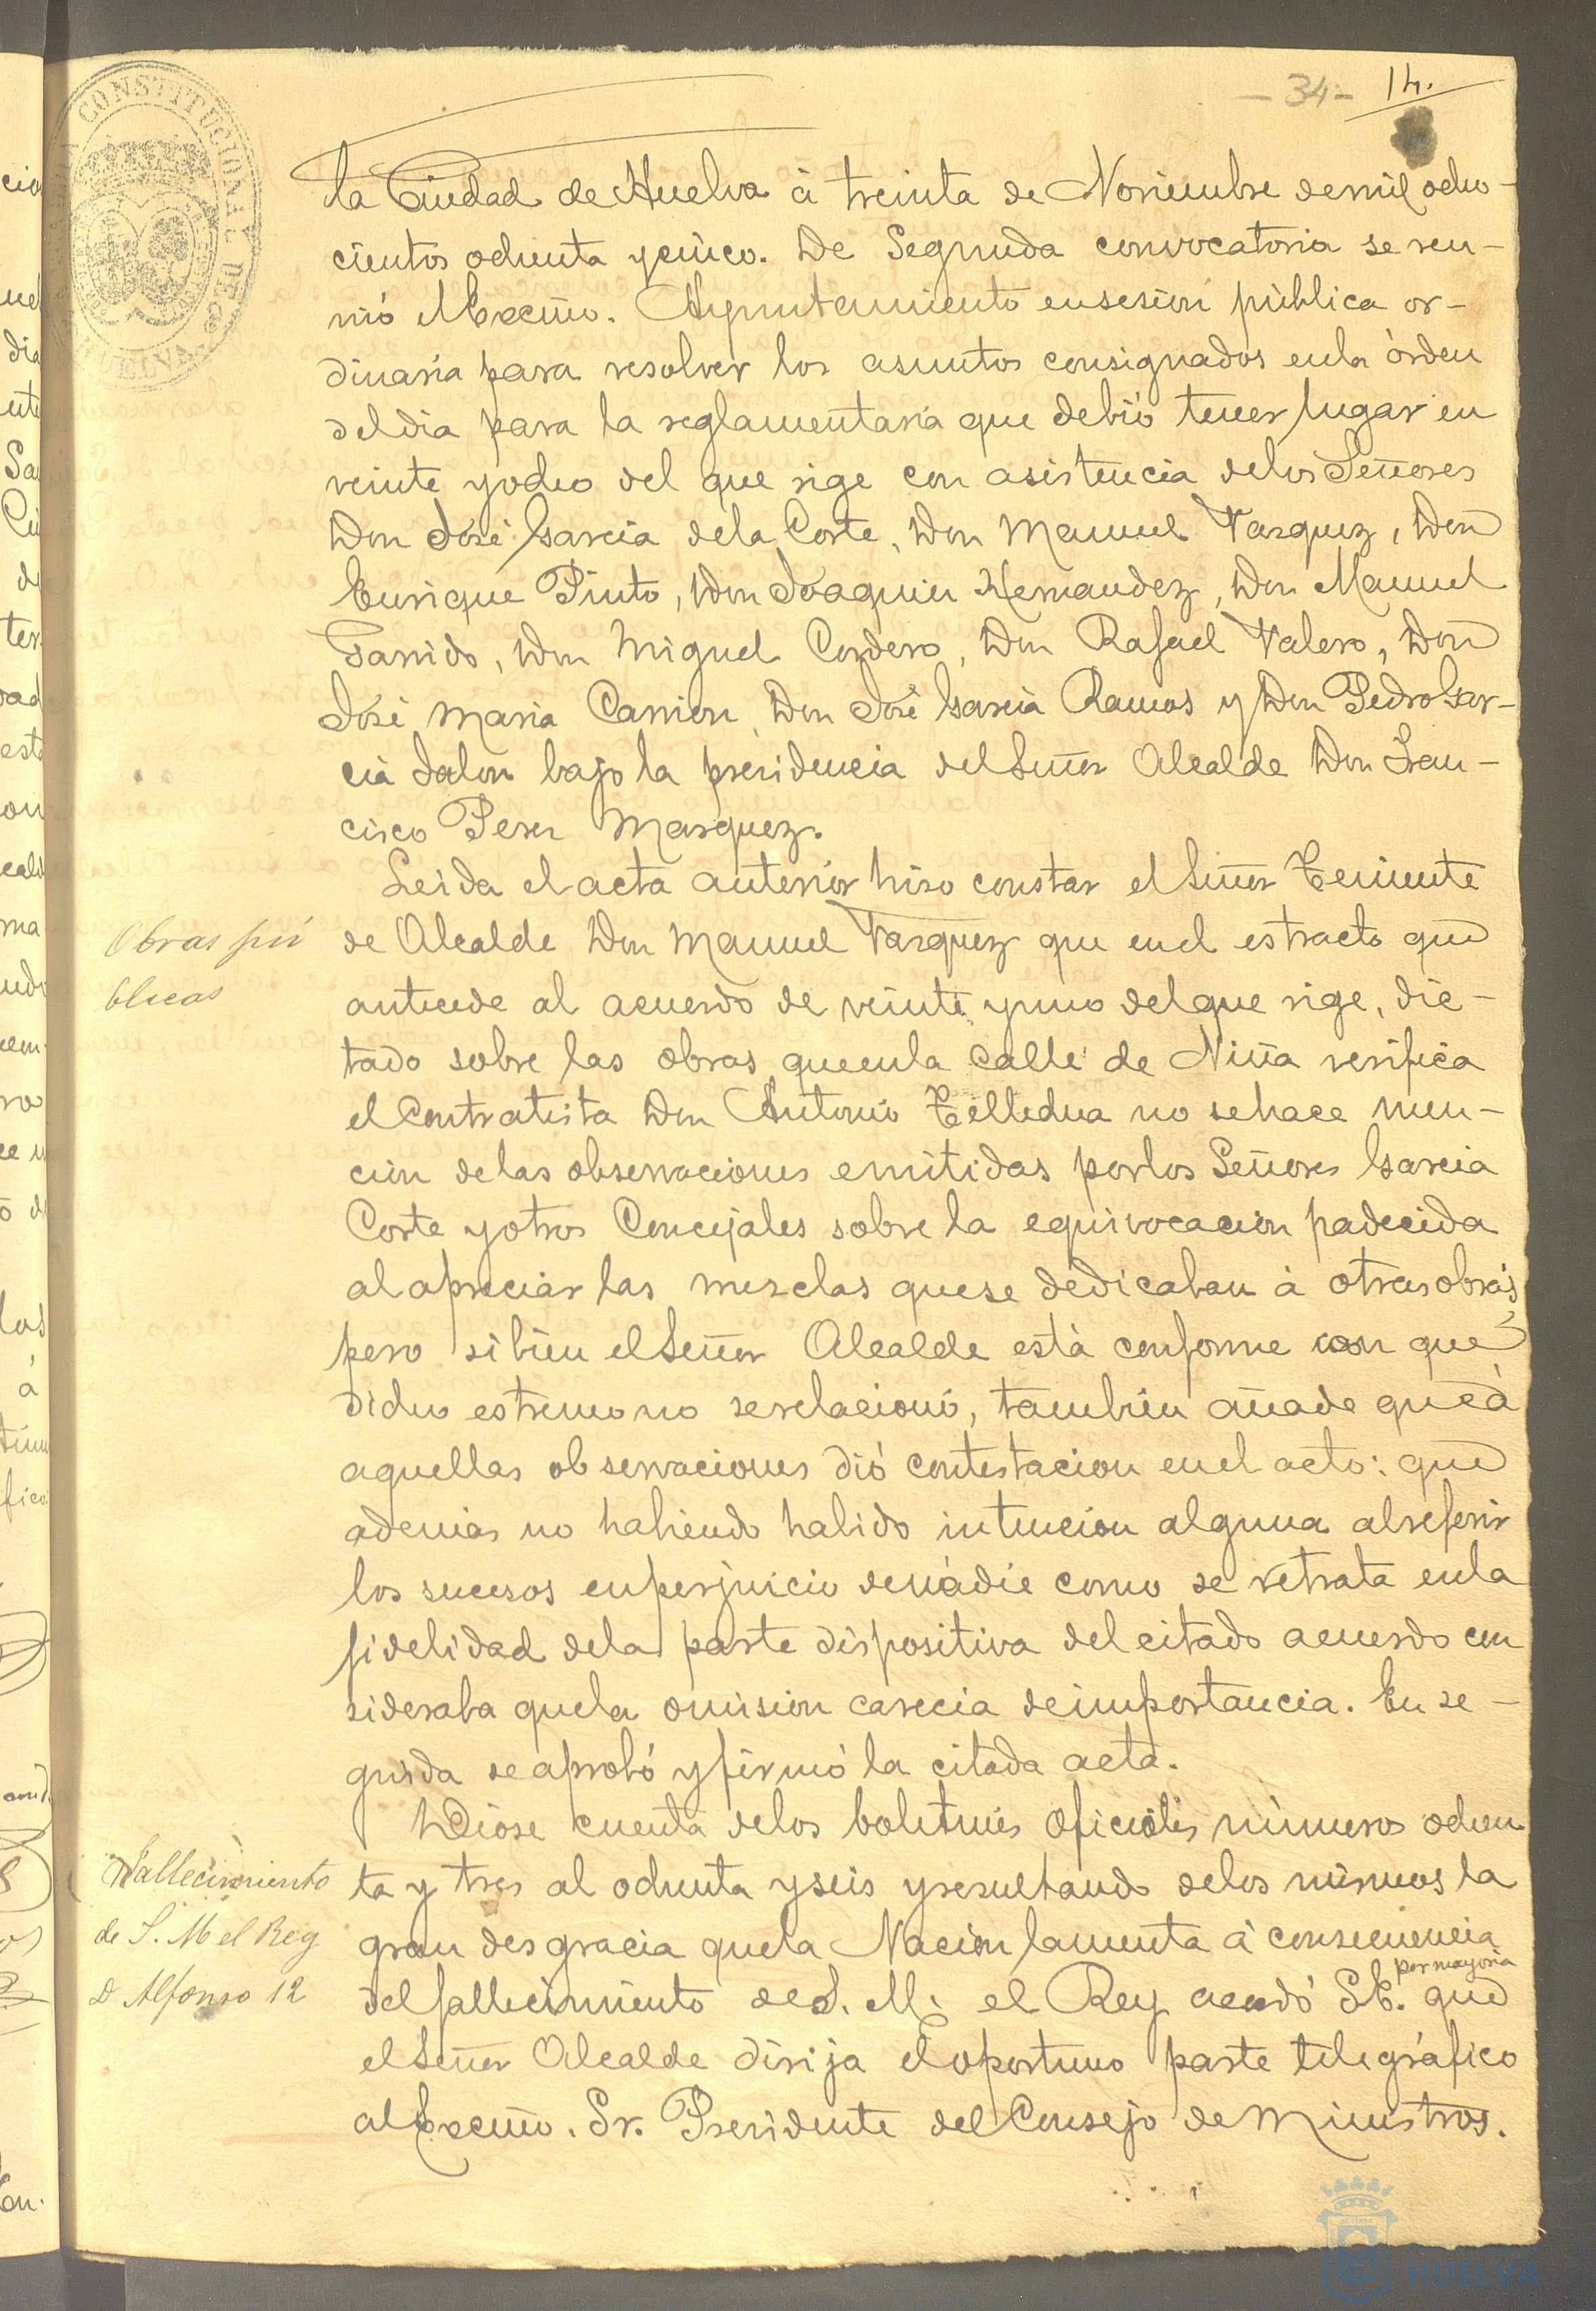 - 34 - 14.
ALCALDIA CONSTITUCIONAL DE HUELVA
la Ciudad de Huelva á treinta de Noviembre de mil ocho-
cientos ochenta y cinco. De Segunda convocatoria se reu-
nió el Excmo. Ayuntamiento en sesion pública or-
dinaria para resolver los asuntos consignados en la órden
del dia para la reglamentaria que debió tener lugar en
veinte y ocho del que rige con asistencia de los Señores
Don José Garcia de la Corte, Don Manuel Vazquez, Don
Enrique Pinto, Don Joaquin Hernandez, Don Manuel
Garrido, Don Miguel Cordero, Don Rafael Valero, Don
José Maria Carrion, Don José Garcia Ramos y Don Pedro Gar-
cia Jalon bajo la presidencia del Señor Alcalde Don Fran-
cisco Peser Marquez.
Leida el acta anterior hizo constar el Señor Teniente
Obras pú
blicas
de Alcalde Don Manuel Vazquez que en el estracto que
antecede al acuerdo de veinte y uno del que rige, dic-
tado sobre las obras que en la calle de Niña verifica
el Contratista Don Antonio Telledua no se hace men-
cion de las observaciones emitidas por los Señores Garcia
Corte y otros Concejales sobre la equivocacion padecida
al apreciar las mezclas que se dedicaban á otras obras,
pero si bien el Señor Alcalde está conforme con que
dicho estremo no se relacionó, tambien añade que á
aquellas observaciones dió contestacion en el acto: que
ademas no habiendo habido intencion alguna al referir
los sucesos en perjuicio de nádie como se retrata en la
fidelidad de la parte dispositiva del citado acuerdo con
sideraba que la omision carecia de importancia. En se-
guida se aprobó y firmó la citada acta.
Dióse cuenta de los boletines oficiales números ochen
Fallecimiento
de S. M el Rey
D Alfonso 12
ta y tres al ochenta y seis y resultando de los mismos la
gran desgracia que la Nacion lamenta á consecuencia
del fallecimiento de S. M. el Rey acordó S.E. por mayoria que
el Señor Alcalde dirija el oportuno parte telegráfico
al Excmo. Sr. Presidente del Consejo de Ministros.
HUELVA